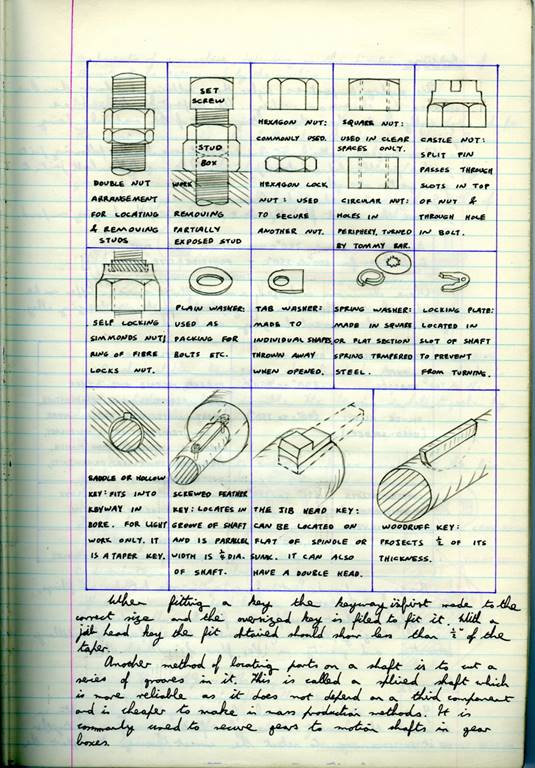 DOUBLE NUT
ARRANGEMENT
FOR LOCATING
& REMOVING
STUDS
SET
SCREW
STUD
BOX
WORK
REMOVING
PARTIALLY
EXPOSED STUD
HEXAGON NUT:
COMMONLY USED.
HEXAGON LOCK
NUT: USED
TO SECURE
ANOTHER NUT.
SQUARE NUT:
USED IN CLEAR
SPACES ONLY.
CIRCULAR NUT:
HOLES IN
PERIPHERY, TURNED
BY TOMMY BAR.
CASTLE NUT:
SPLIT PIN
PASSES THROUGH
SLOTS IN TOP
OF NUT &
THROUGH HOLE
IN BOLT.
SELF LOCKING
SIMMONDS NUT;
RING OF FIBRE
LOCKS NUT.
PLAIN WASHER:
USED AS
PACKING FOR
BOLTS ETC.
TAB WASHER:
MADE TO
INDIVIDUAL SHAPES,
THROWN AWAY
WHEN OPENED.
SPRING WASHER:
MADE IN SQUARE
OR FLAT SECTION
SPRING TEMPERED
STEEL.
LOCKING PLATE:
LOCATED IN
SLOT OF SHAFT
TO PREVENT
FROM TURNING.
SADDLE OR HOLLOW
KEY: FITS INTO
KEYWAY IN
BORE. FOR LIGHT
WORK ONLY. IT
IS A TAPER KEY.
SCREWED FEATHER
KEY: LOCATES IN
GROOVE OF SHAFT
AND IS PARALLEL
WIDTH IS DIA.
OF SHAFT.
THE JIB HEAD KEY:
CAN BE LOCATED ON
FLAT OF SPINDLE OR
SUNK. IT CAN ALSO
HAVE A DOUBLE HEAD.
WOODRUFF KEY:
PROJECTS ½ OF ITS
THICKNESS.
When fitting a key the keyway is first made to the
correct size and the oversized key is filed to fit it. With a
jib head key the fit obtained should show less than of the
taper.
Another method of locating parts on a shaft is to cut a
series of grooves in it. This is called a splined shaft which
is more reliable as it does not depend on a third component
and is cheaper to make in mass production methods. It is
commonly used to secure gears to motion shafts in gear
boxes.